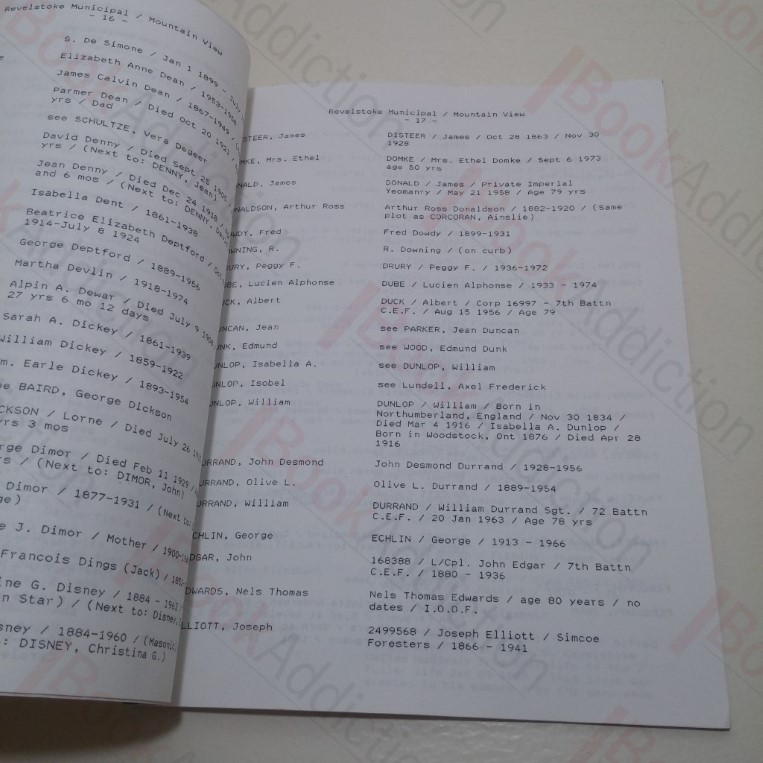 Revelstoke Municipal / Mountain View
- 16 -
S. De Simone / Jan 1 1899 - July
Elizabeth Anne Dean / 1953-1956
James Calvin Dean / 1867-1949
Parmer Dean / Died Oct 20 1921 /
yrs / Dad
see SCHULTZE, Vera Degeer
David Denny / Died Sept 25 1905 /
yrs / (Next to: DENNY, Jean)
Jean Denny / Died Dec 24 1918
and 6 mos / (Next to: DENNY, David
Isabella Dent / 1861-1938
Beatrice Elizabeth Deptford / Oct
1914-July 8 1924
George Deptford / 1889-1966
Martha Devlin / 1918-1974
Alpin A. Dewar / Died July 9 1906
27 yrs 6 mo 12 days
Sarah A. Dickey / 1861-1939
William Dickey / 1859-1922
m. Earle Dickey / 1893-1954
e BAIRD, George Dickson
CKSON / Lorne / Died July 26
yrs 3 mos
rge Dimor / Died Feb 11 1929 /
rs / (Next to: DIMOR, John)
Dimor / 1877-1931 / (Next to:
ge)
e J. Dimor / Mother / 1900-
Francois Dings (Jack) /
ine G. Disney / 1884 - 1961
n Star) / (Next to: Disney,
sney / 1884-1960 / (Masonic)
: DISNEY, Christina G.)
Revelstoke Municipal / Mountain View
- 17 -
STEER, James DISTEER / James / Oct 28 1863 / Nov 30
1928
OMKE, Mrs. Ethel DOMKE / Mrs. Ethel Domke / Sept 6 1973
age 80 yrs
NALD, James DONALD / James / Private Imperial
Yeomanry / May 21 1958 / Age 79 yrs
NALDSON, Arthur Ross Arthur Ross Donaldson / 1882-1920 / (Same
plot as CORCORAN, Ainslie)
WDY, Fred Fred Dowdy / 1899-1931
WNING, R. R. Downing / (on curb)
RURY, Peggy F. DRURY / Peggy F. / 1936-1972
UBE, Lucien Alphonse DUBE / Lucien Alphonse / 1933 - 1974
UCK, Albert DUCK / Albert / Corp 16997 - 7th Battn
C.E.F. / Aug 15 1956 / Age 79
UNCAN, Jean see PARKER, Jean Duncan
UNK, Edmund see WOOD, Edmund Dunk
UNLOP, Isabella A. see DUNLOP, William
UNLOP, Isobel see Lundell, Axel Frederick
UNLOP, William DUNLOP / William / Born in
Northumberland, England / Nov 30 1834 /
Died Mar 4 1916 / Isabella A. Dunlop /
Born in Woodstock, Ont 1876 / Died Apr 28
1916
URRAND, John Desmond John Desmond Durrand / 1928-1956
URRAND, Olive L. Olive L. Durrand / 1889-1954
URRAND, William DURRAND / William Durrand Sgt. / 72 Battn
C.E.F. / 20 Jan 1963 / Age 78 yrs
CHLIN, George ECHLIN / George / 1913 - 1966
DGAR, John 168388 / L/Cpl. John Edgar / 7th Battn
C.E.F. / 1880 - 1936
DWARDS, Nels Thomas Nels Thomas Edwards / age 80 years / no
dates / I.O.O.F.
LLIOTT, Joseph 2499568 / Joseph Elliott / Simcoe
Foresters / 1866 - 1941
BookAddiction